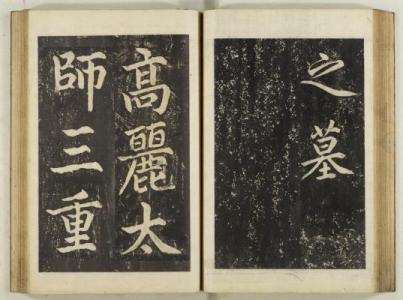 之墓
高麗太
師三重